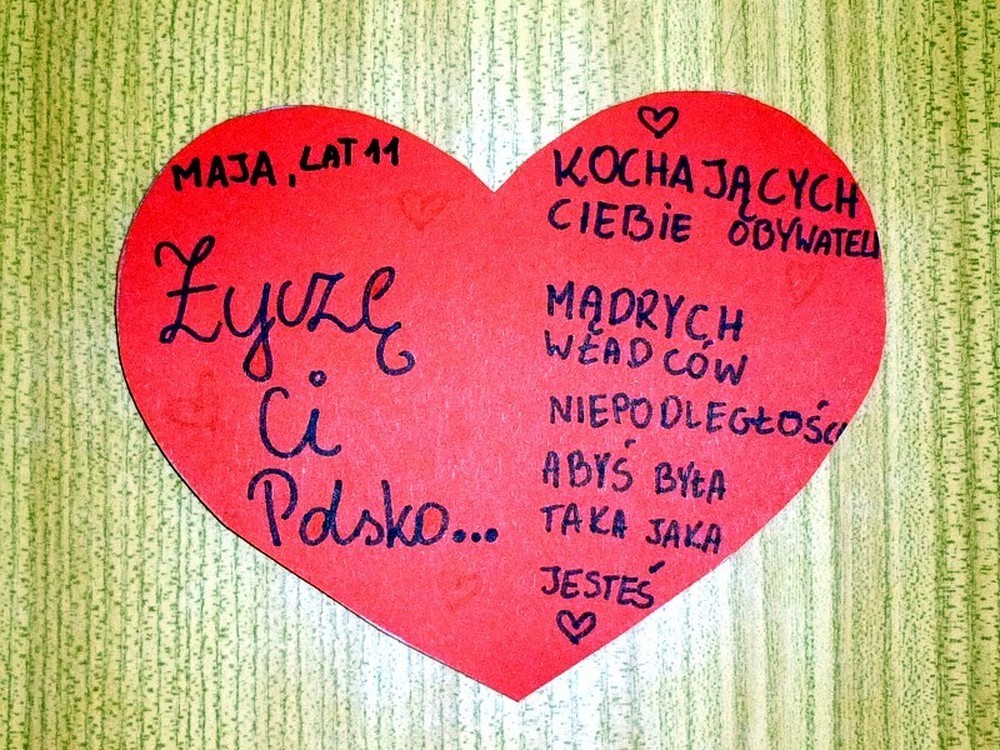 MAJA, LAT 11
Życzę
Ci
Polsko...
KOCHAJĄCYCH
CIEBIE OBYWATELI
MĄDRYCH
WŁADCÓW
NIEPODLEGŁOŚCI
ABYŚ BYŁA
TAKA JAKA
JESTEŚ